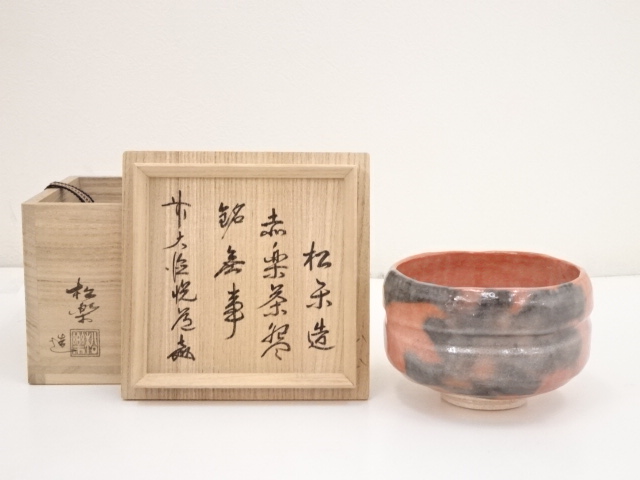 松楽造
赤楽茶碗
銘無事
前大徳悦道
松楽
造